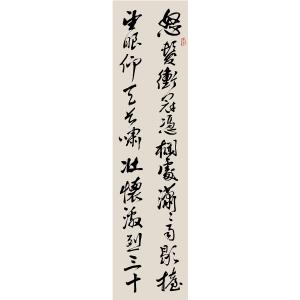 怒髮衝冠憑欄處瀟々雨歇擡
望眼仰天長嘯壯懷激烈三十